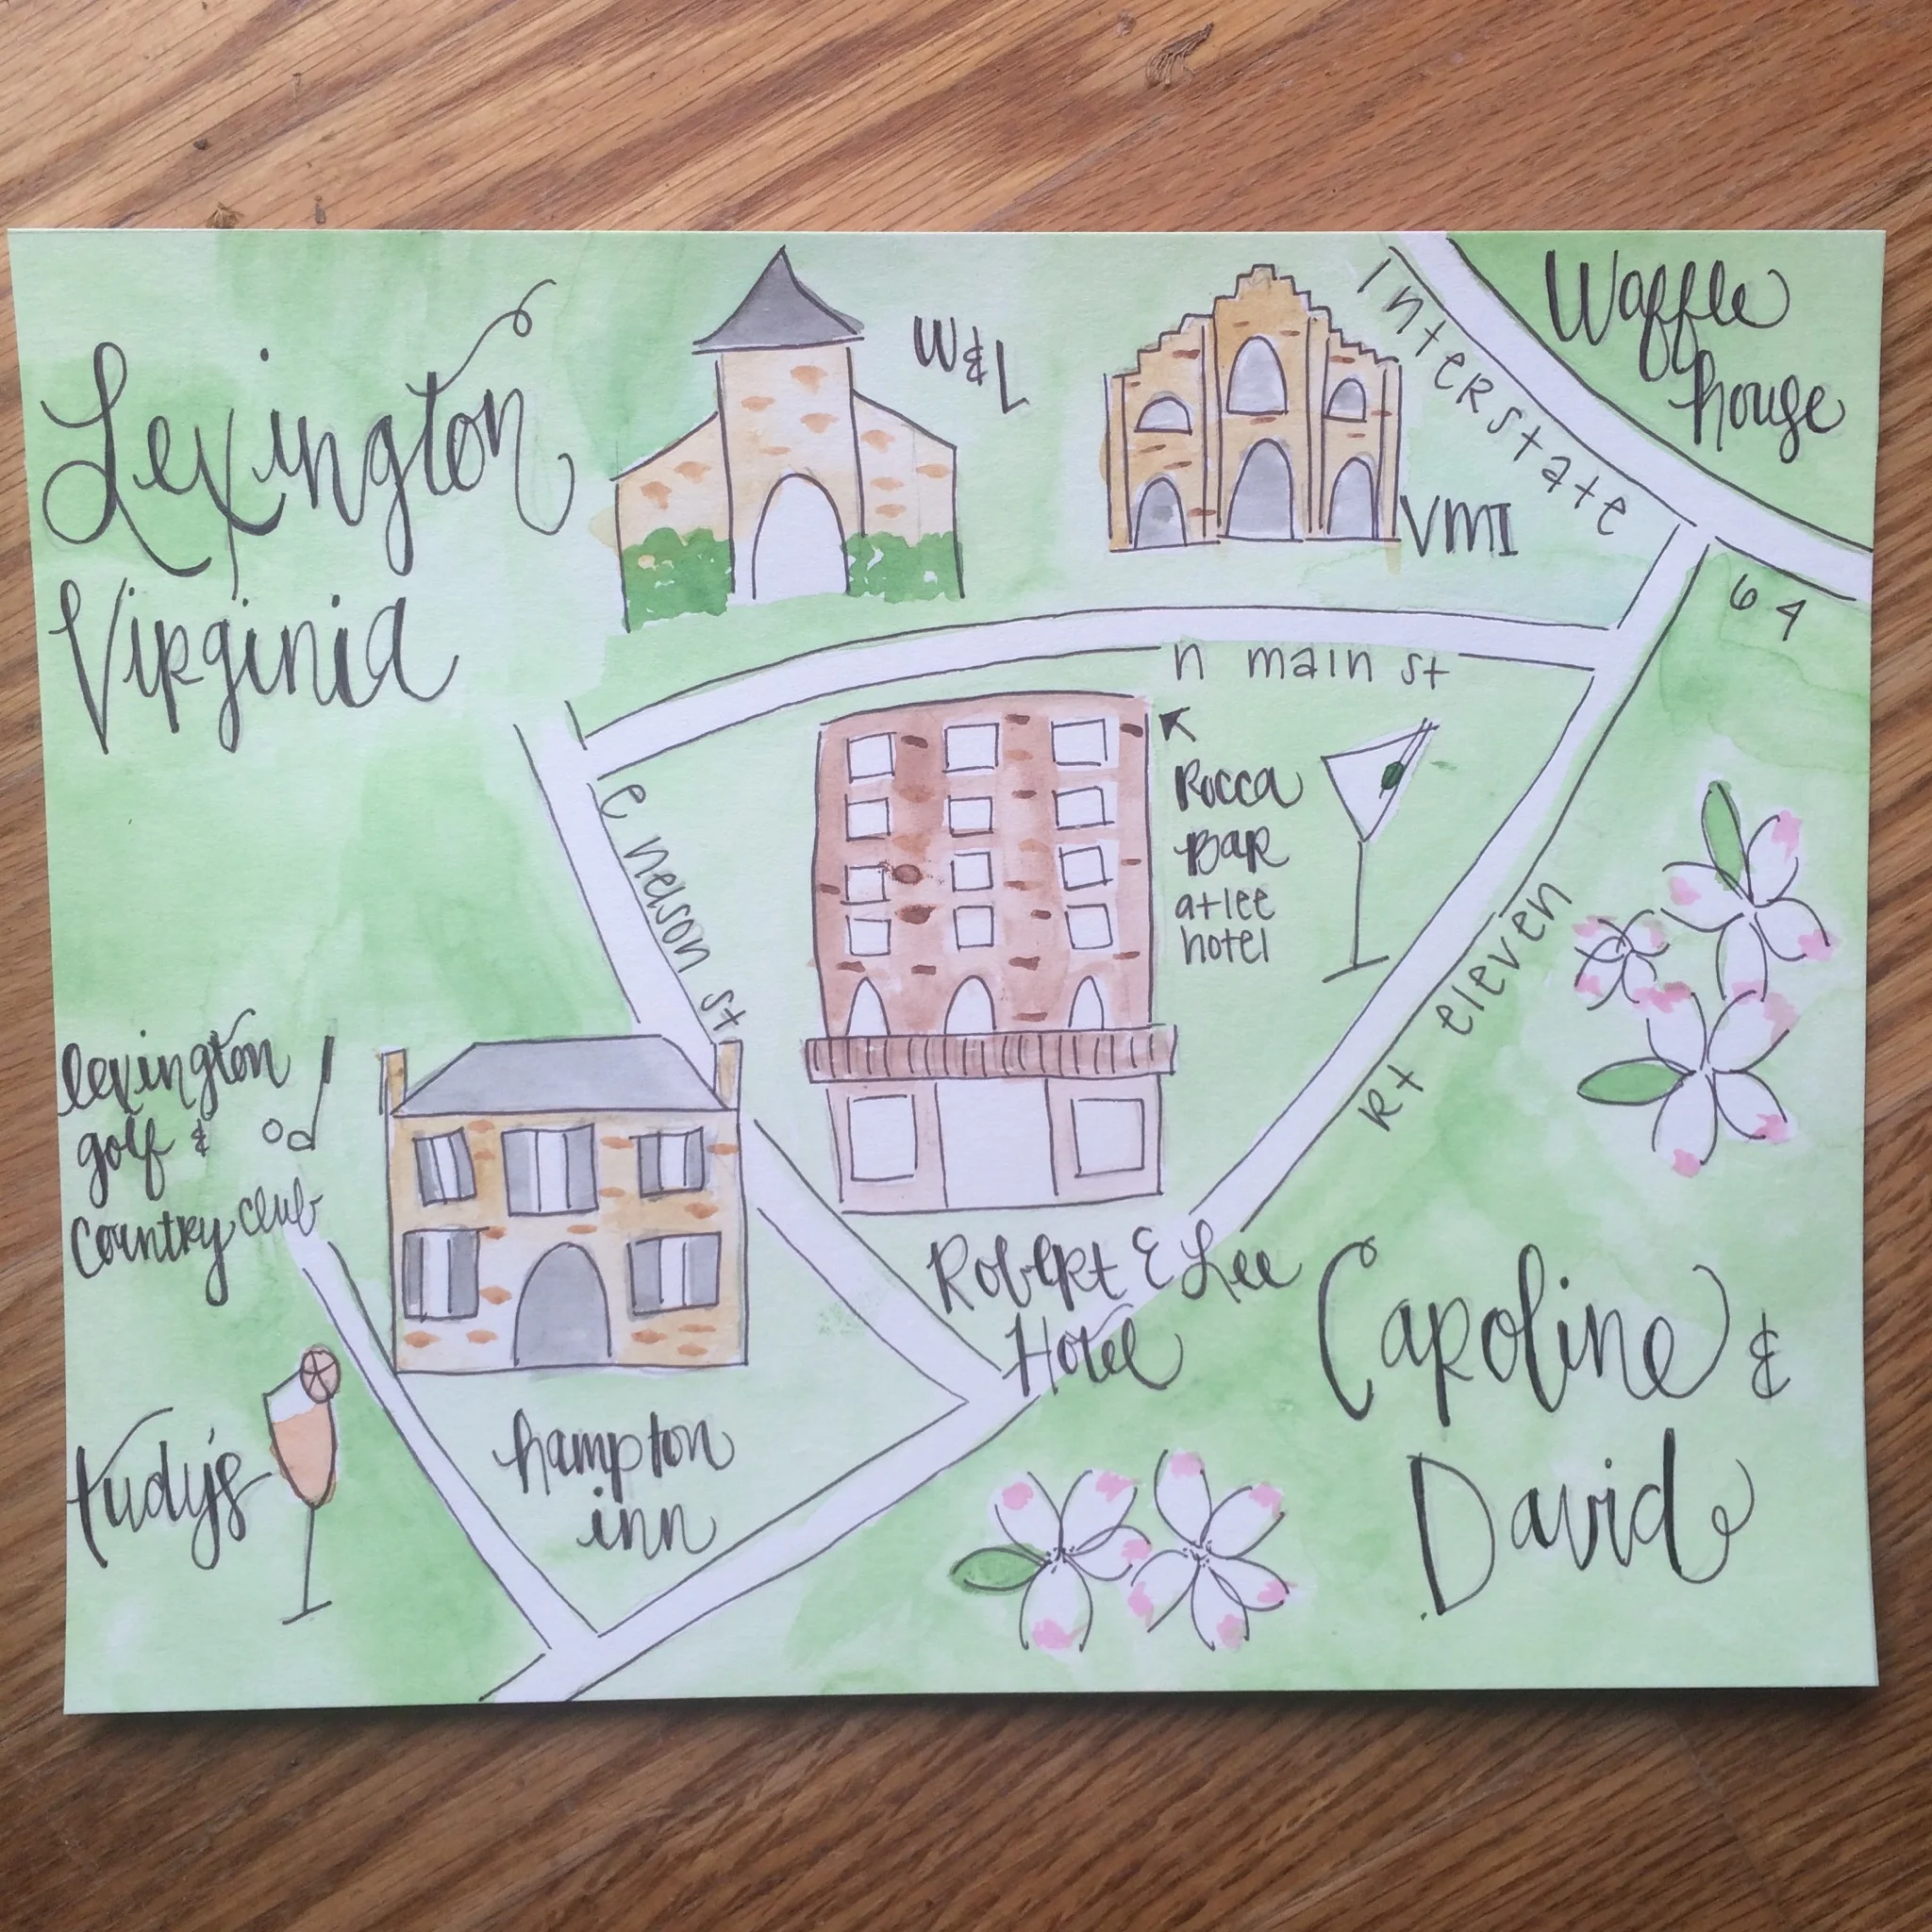 Lexington
Virginia
W & L
VMI
Interstate
64
Waffle
house
n main st
e nelson st
Rocca
Bar
at lee
hotel
Rt eleven
lexington
golf &
country club
Robert E Lee
Hotel
hampton
inn
tudy's
Caroline &
David